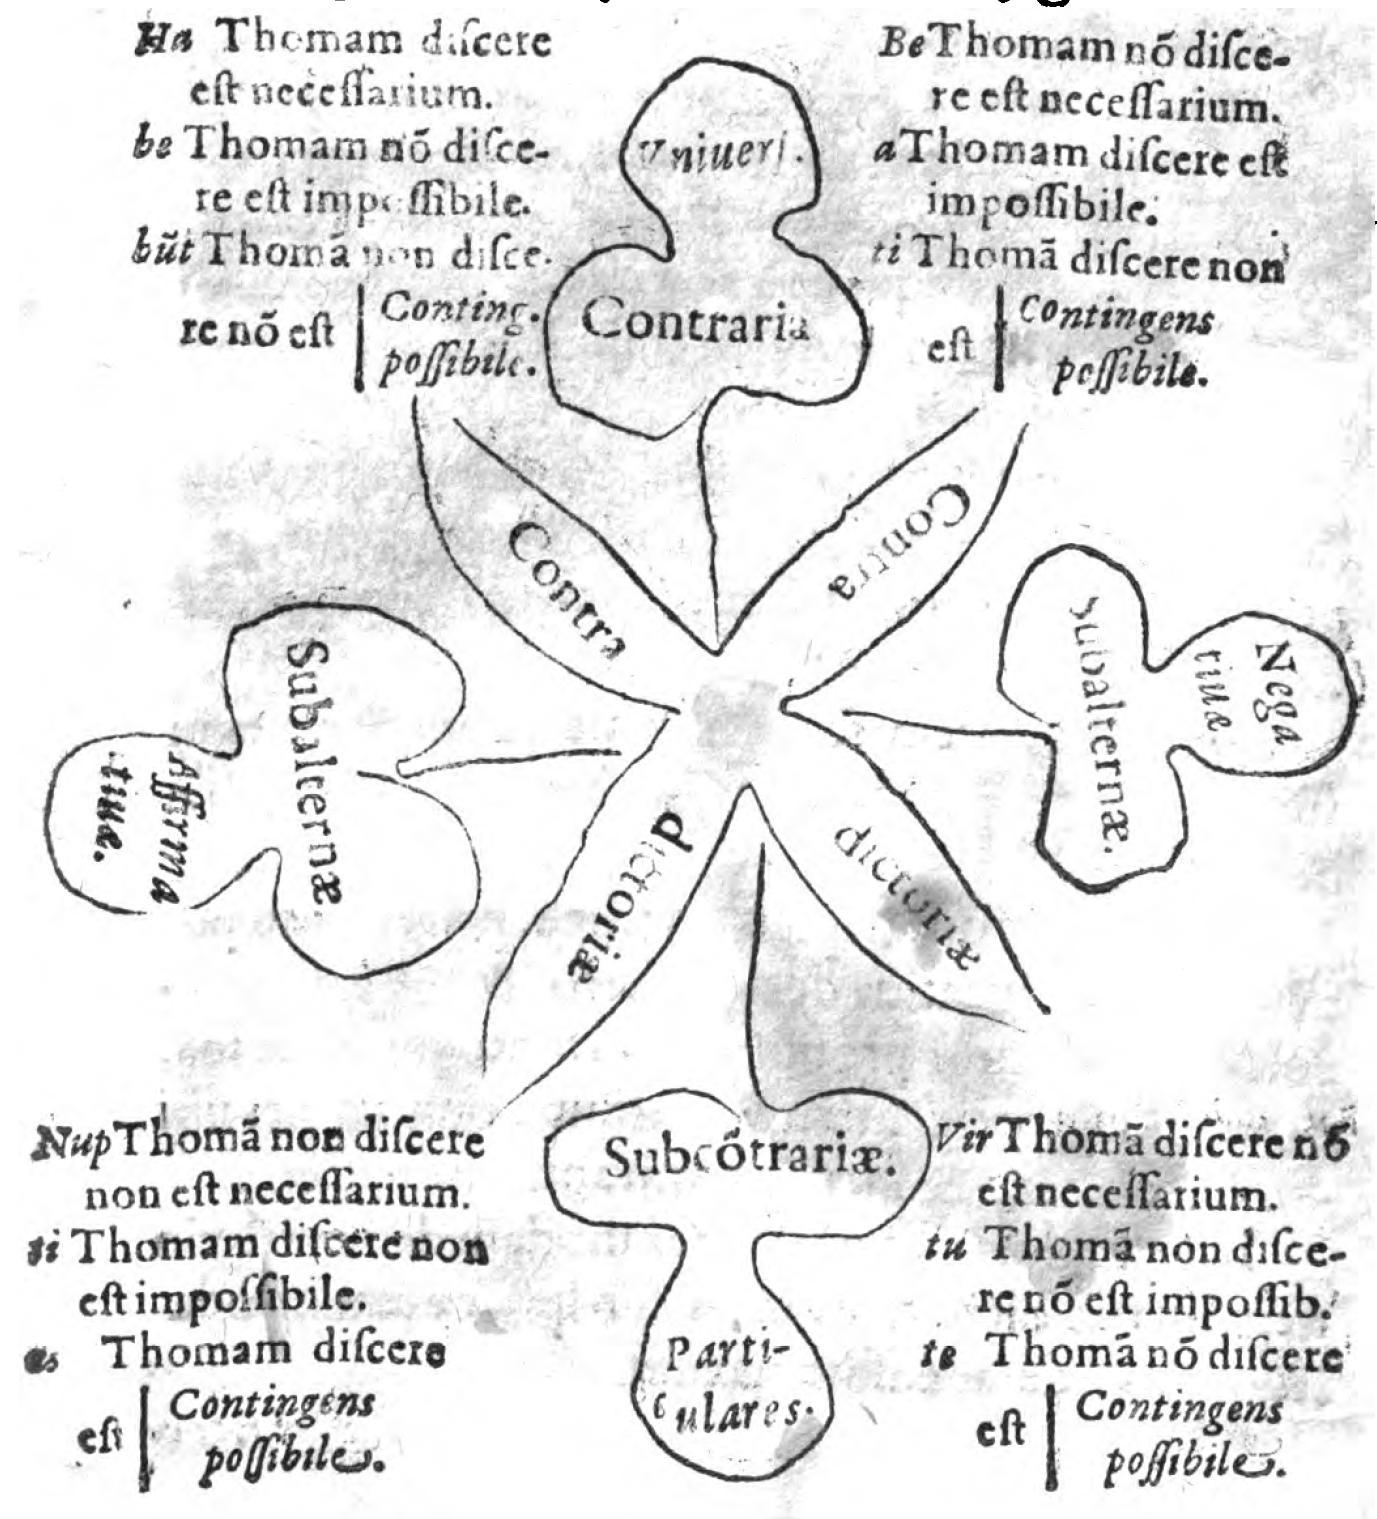 Ha Thomam diſcere
eſt neceſſarium.
be Thomam nō diſce-
re eſt impoſſibile.
būt Thomā non diſce-
re nō eſt | Conting.
poſſibile.
Vniuerſ.
Contraria
Be Thomam nō diſce-
re eſt neceſſarium.
a Thomam diſcere eſt
impoſſibile.
ti Thomā diſcere non
eſt | Contingens
poſſibile.
Contra
Contra
Subalternæ
Affirma
tiuæ.
Subalternæ.
Nega
tiuæ
dictoriæ
dictoriæ
Nup Thomā non diſcere
non eſt neceſſarium.
ti Thomam diſcere non
eſt impoſſibile.
as Thomam diſcere
eſt | Contingens
poſſibile.
Subcōtrariæ.
Parti-
culares.
Vir Thomā diſcere nō
eſt neceſſarium.
tu Thomā non diſce-
re nō eſt impoſſib.
te Thomā nō diſcere
eſt | Contingens
poſſibile.